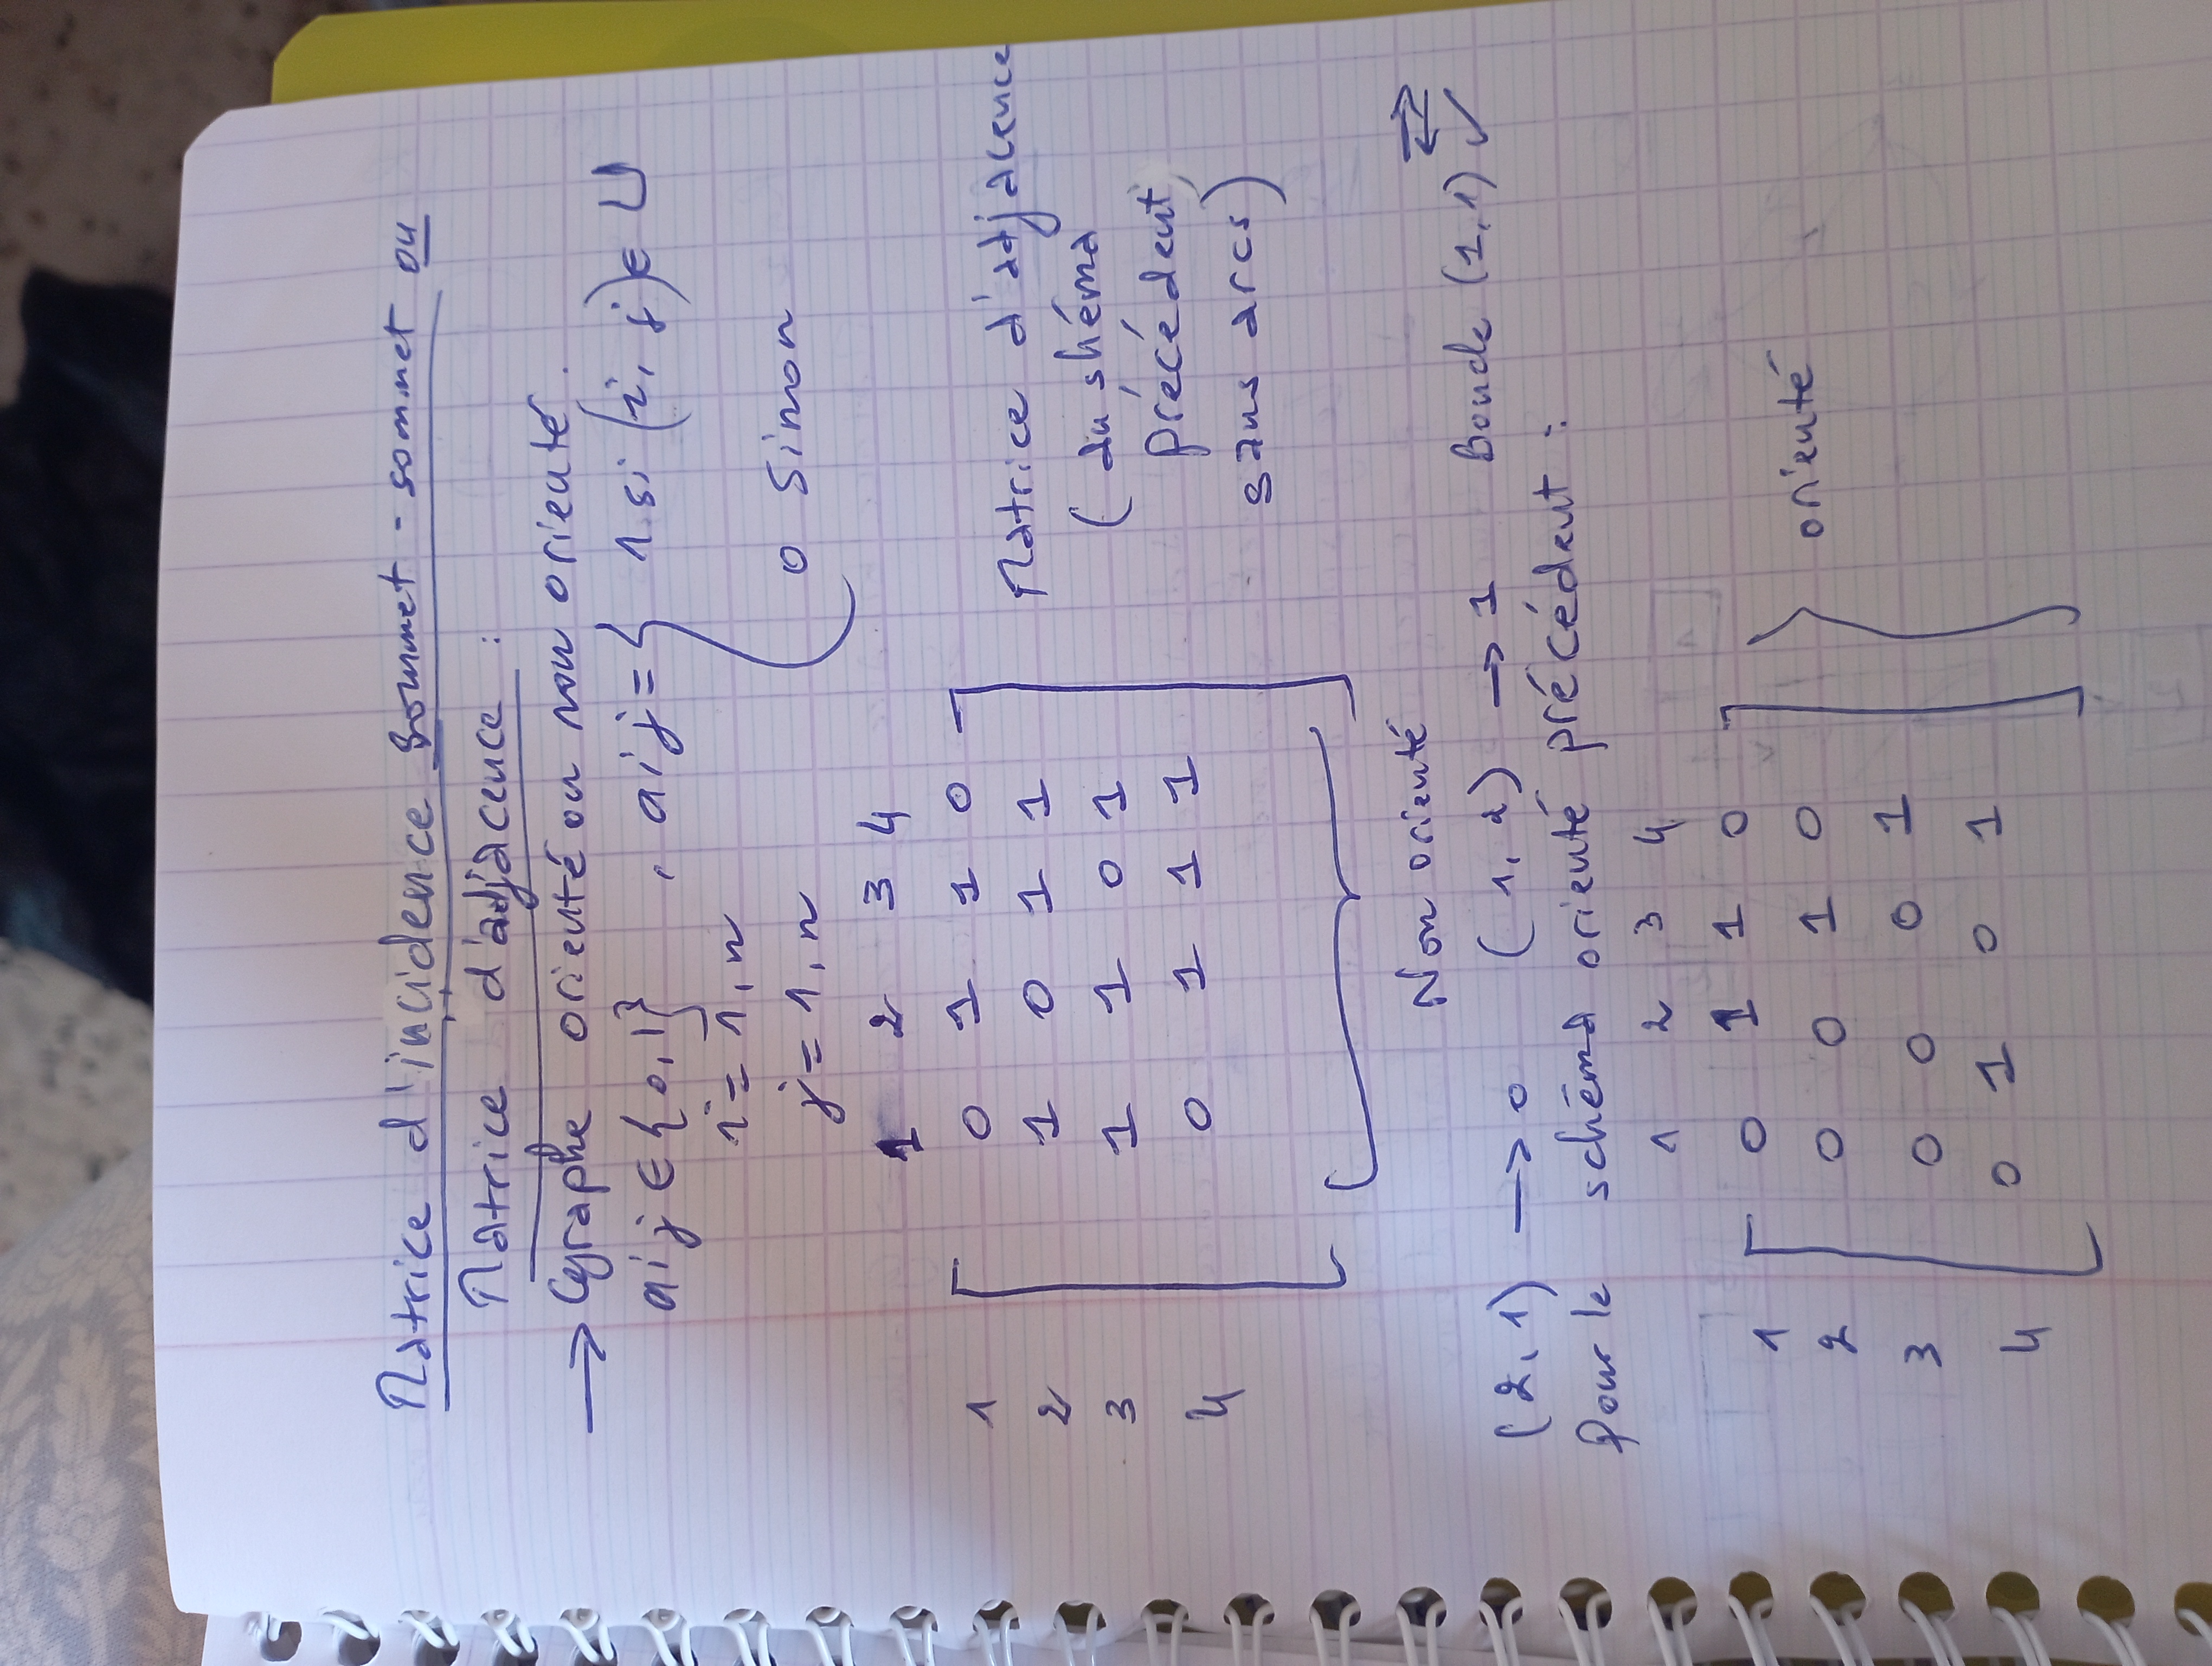 Matrice d'incidence sommet - sommet ou
Matrice d'adjacence :
→ Graphe orienté ou non orienté.
aij ∈ {0,1} , aij = { 1 si (i,j) ∈ U
i = 1,n
j = 1,n 0 Sinon
1 2 3 4
1 0 1 1 0
2 1 0 1 1
3 1 1 0 1
4 0 1 1 1
Matrice d'adjacence
(du shéma
précédent
sans arcs)
Non orienté
(2,1) → 0 (1,2) → 1 Boucle (1,1) ✓ ⇄
Pour le schéma orienté précédent :
1 2 3 4
1 0 1 1 0
2 0 0 1 0
3 0 0 0 1
4 0 1 0 1
orienté